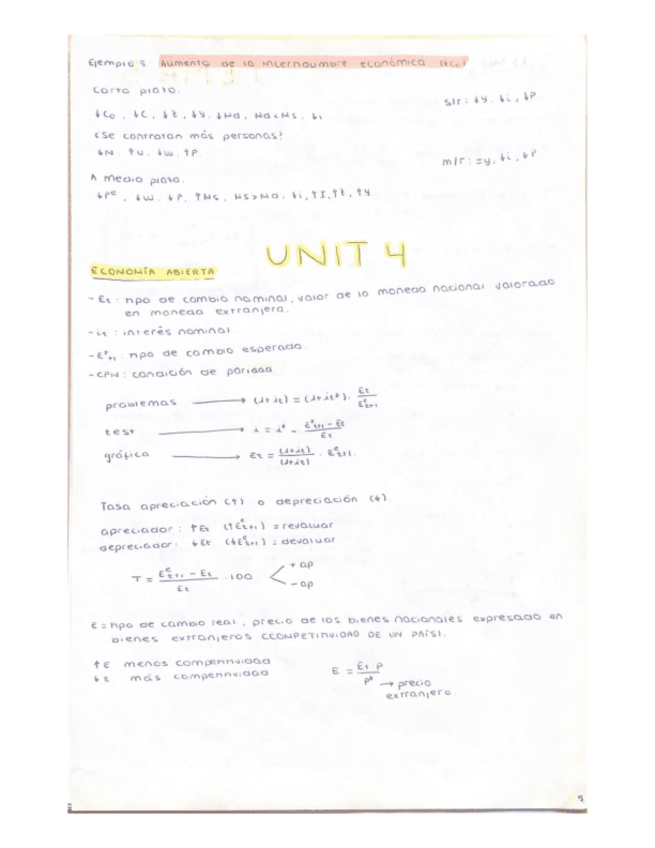 Ejemplo 3 Aumento de la incertidumbre económica (↓C₀)
Corto plazo.
↓C₀, ↓C, ↓Z, ↓Y, ↓Md, Md<Ms, ↓i
s/r: ↓Y, ↓i, ↓P
¿Se contratan más personas?
↓N, ↑U, ↓W, ↑P
m/r: =Y, ↓i, ↓P
A medio plazo.
↓Pᵉ, ↓W, ↓P, ↑Ms, Ms>Md, ↓i, ↑I, ↑Z, ↑Y
UNIT 4
ECONOMÍA ABIERTA
- Et: tipo de cambio nominal, valor de la moneda nacional valorado
en moneda extranjera.
- it: interés nominal
- Eᵉt+1: tipo de cambio esperado.
- CPN: condición de paridad
problemas → (1+it) = (1+it*) · Et / Eᵉt+1
test → i = i* - (Eᵉt+1 - Et) / Et
gráfica → Et = (1+it) / (1+it*) · Eᵉt+1
Tasa apreciación (↑) o depreciación (↓)
apreciador: ↑Et (↑Eᵉt+1) = revaluar
depreciador: ↓Et (↓Eᵉt+1) = devaluar
T = (Eᵉt+1 - Et) / Et · 100 < + ap - ap
E = tipo de cambio real, precio de los bienes nacionales expresado en
bienes extranjeros (COMPETITIVIDAD DE UN PAÍS).
↑E menos competitividad
↓E más competitividad
E = Et · P / P* → precio
extranjero
9